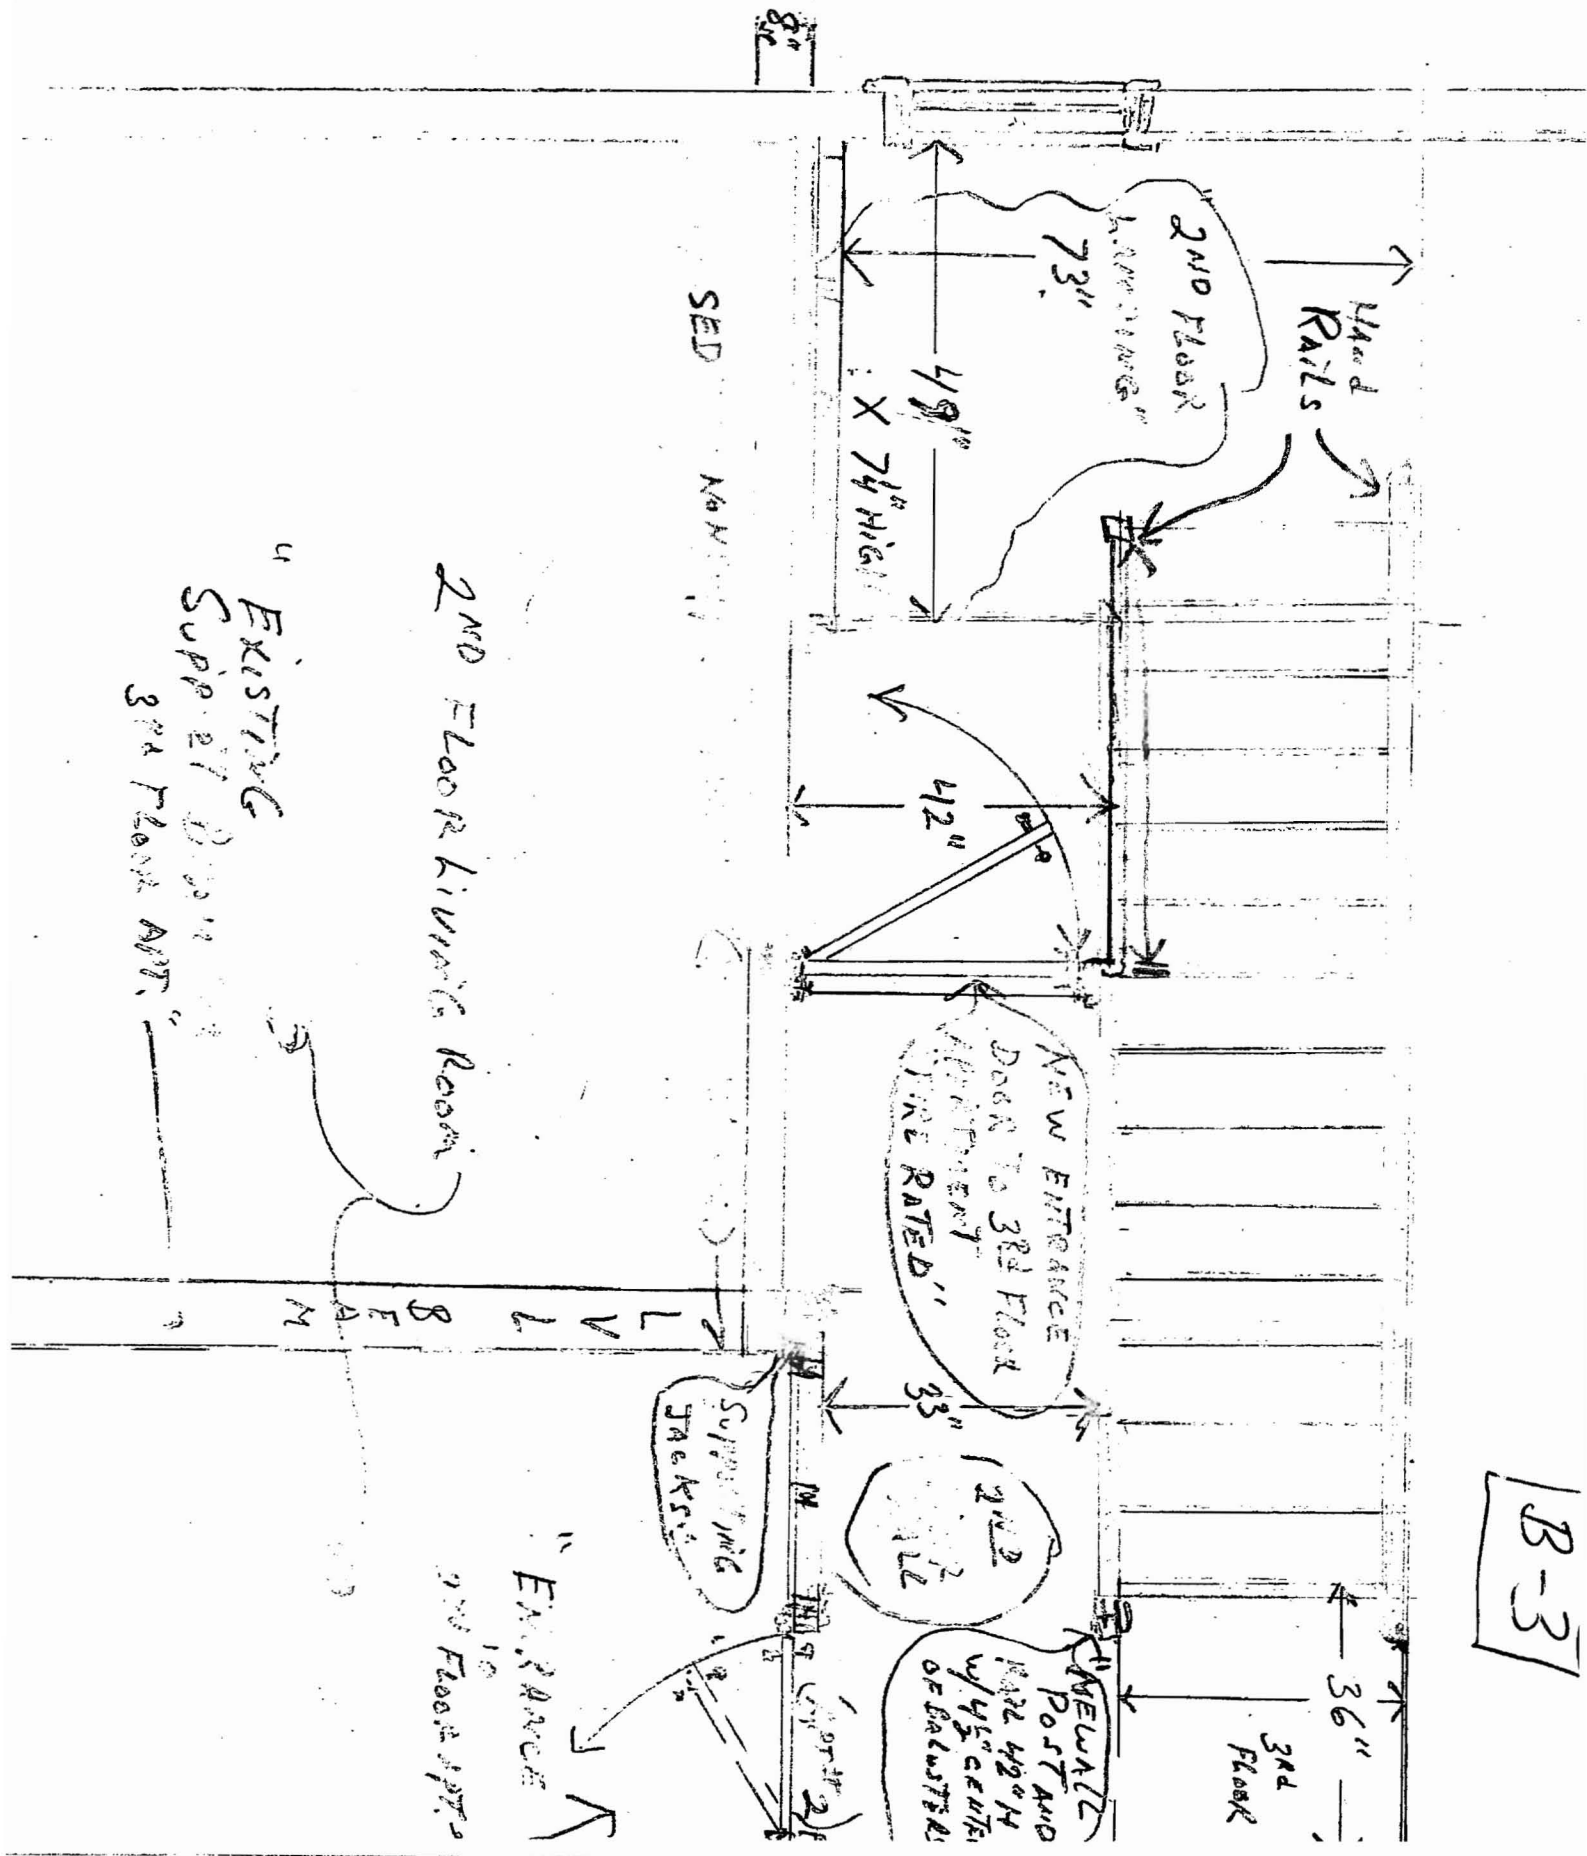 B-3
8"
Hand
RAiLS
2ND FLOOR
LANDING"
73"
49"
X 74" HIGH
SED NON
42"
NEW ENTRANCE
DOOR TO 3Rd FLOOR
APARTMENT
FIRE RATED"
33"
2ND
36"
3Rd
FLOOR
"NEWALL
POST AND
RAIL 42" H
W/ 4½" CENTE
OF BALUSTERS
SUPPORTING
JACKS
L
V
L
B
E
A
M
2ND FLOOR LIVING ROOM
" EXISTING
3Rd FLOOR APT."
"ENTRANCE
FLOOR APT.